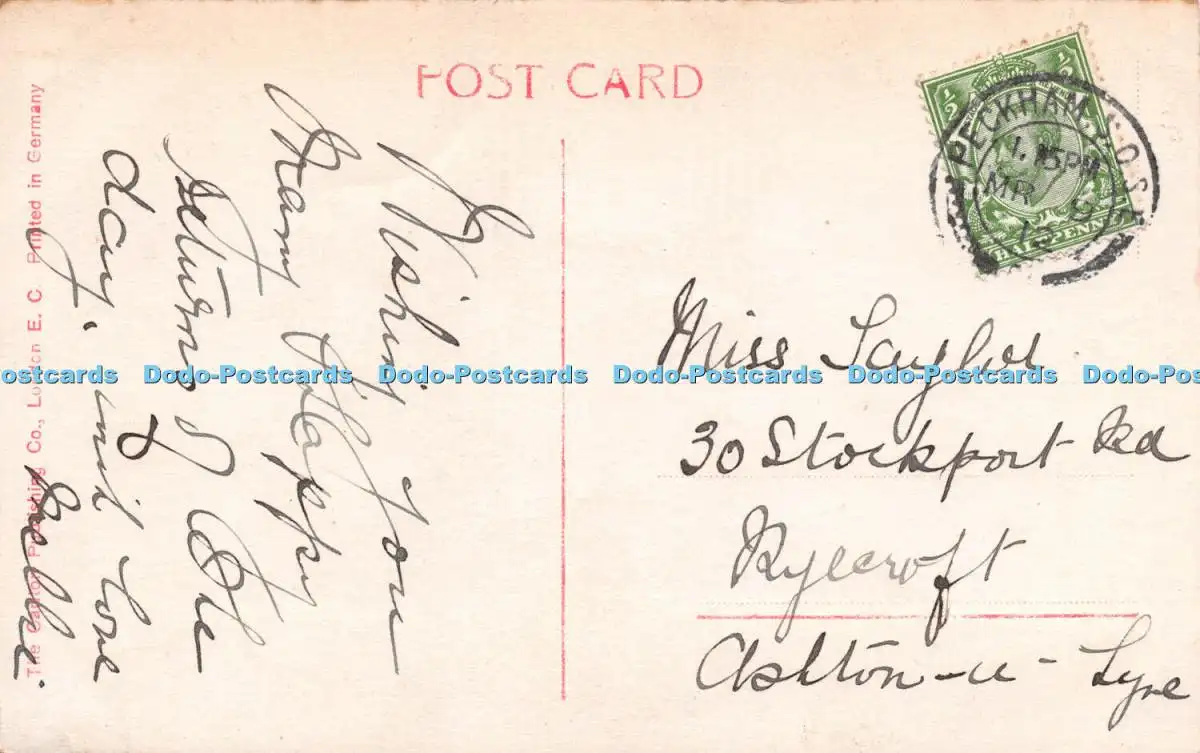 POST CARD
The Carlton Publishing Co., London E. C Printed in Germany
Wishing you
Many Happy
Returns of the
day, with love
Nellie.
½ ½
HALF PENNY
PECKHAM S.O. S.E
1.15PM
MR 9
13
Miss Taylor
30 Stockport Rd
Rylecroft
Ashton-u-Lyne
Dodo-Postcards Dodo-Postcards Dodo-Postcards Dodo-Postcards Dodo-Postcards Dodo-Postcards